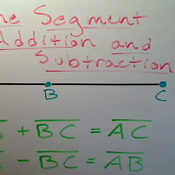 ne Segment
Addition and
Subtraction
B C
+ BC = AC
- BC = AB